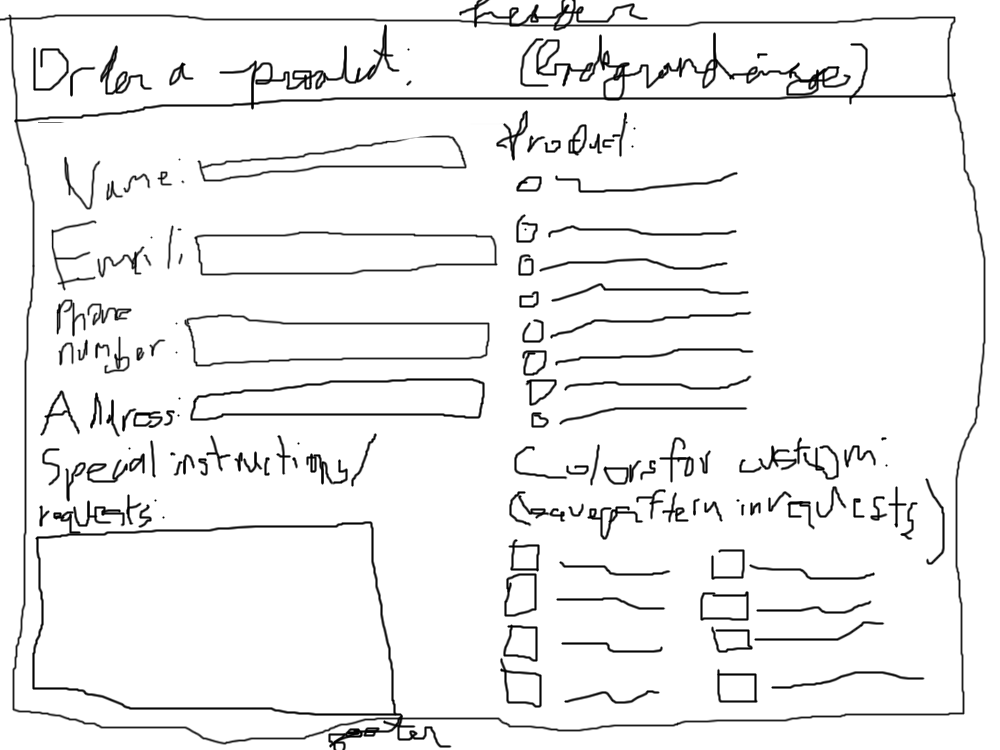 header
Order a product:
(Background image)
Name:
Email:
Phone
number:
Address:
Special instructions/
requests:
Product:
Colors for custom:
(leave pattern in requests)
footer